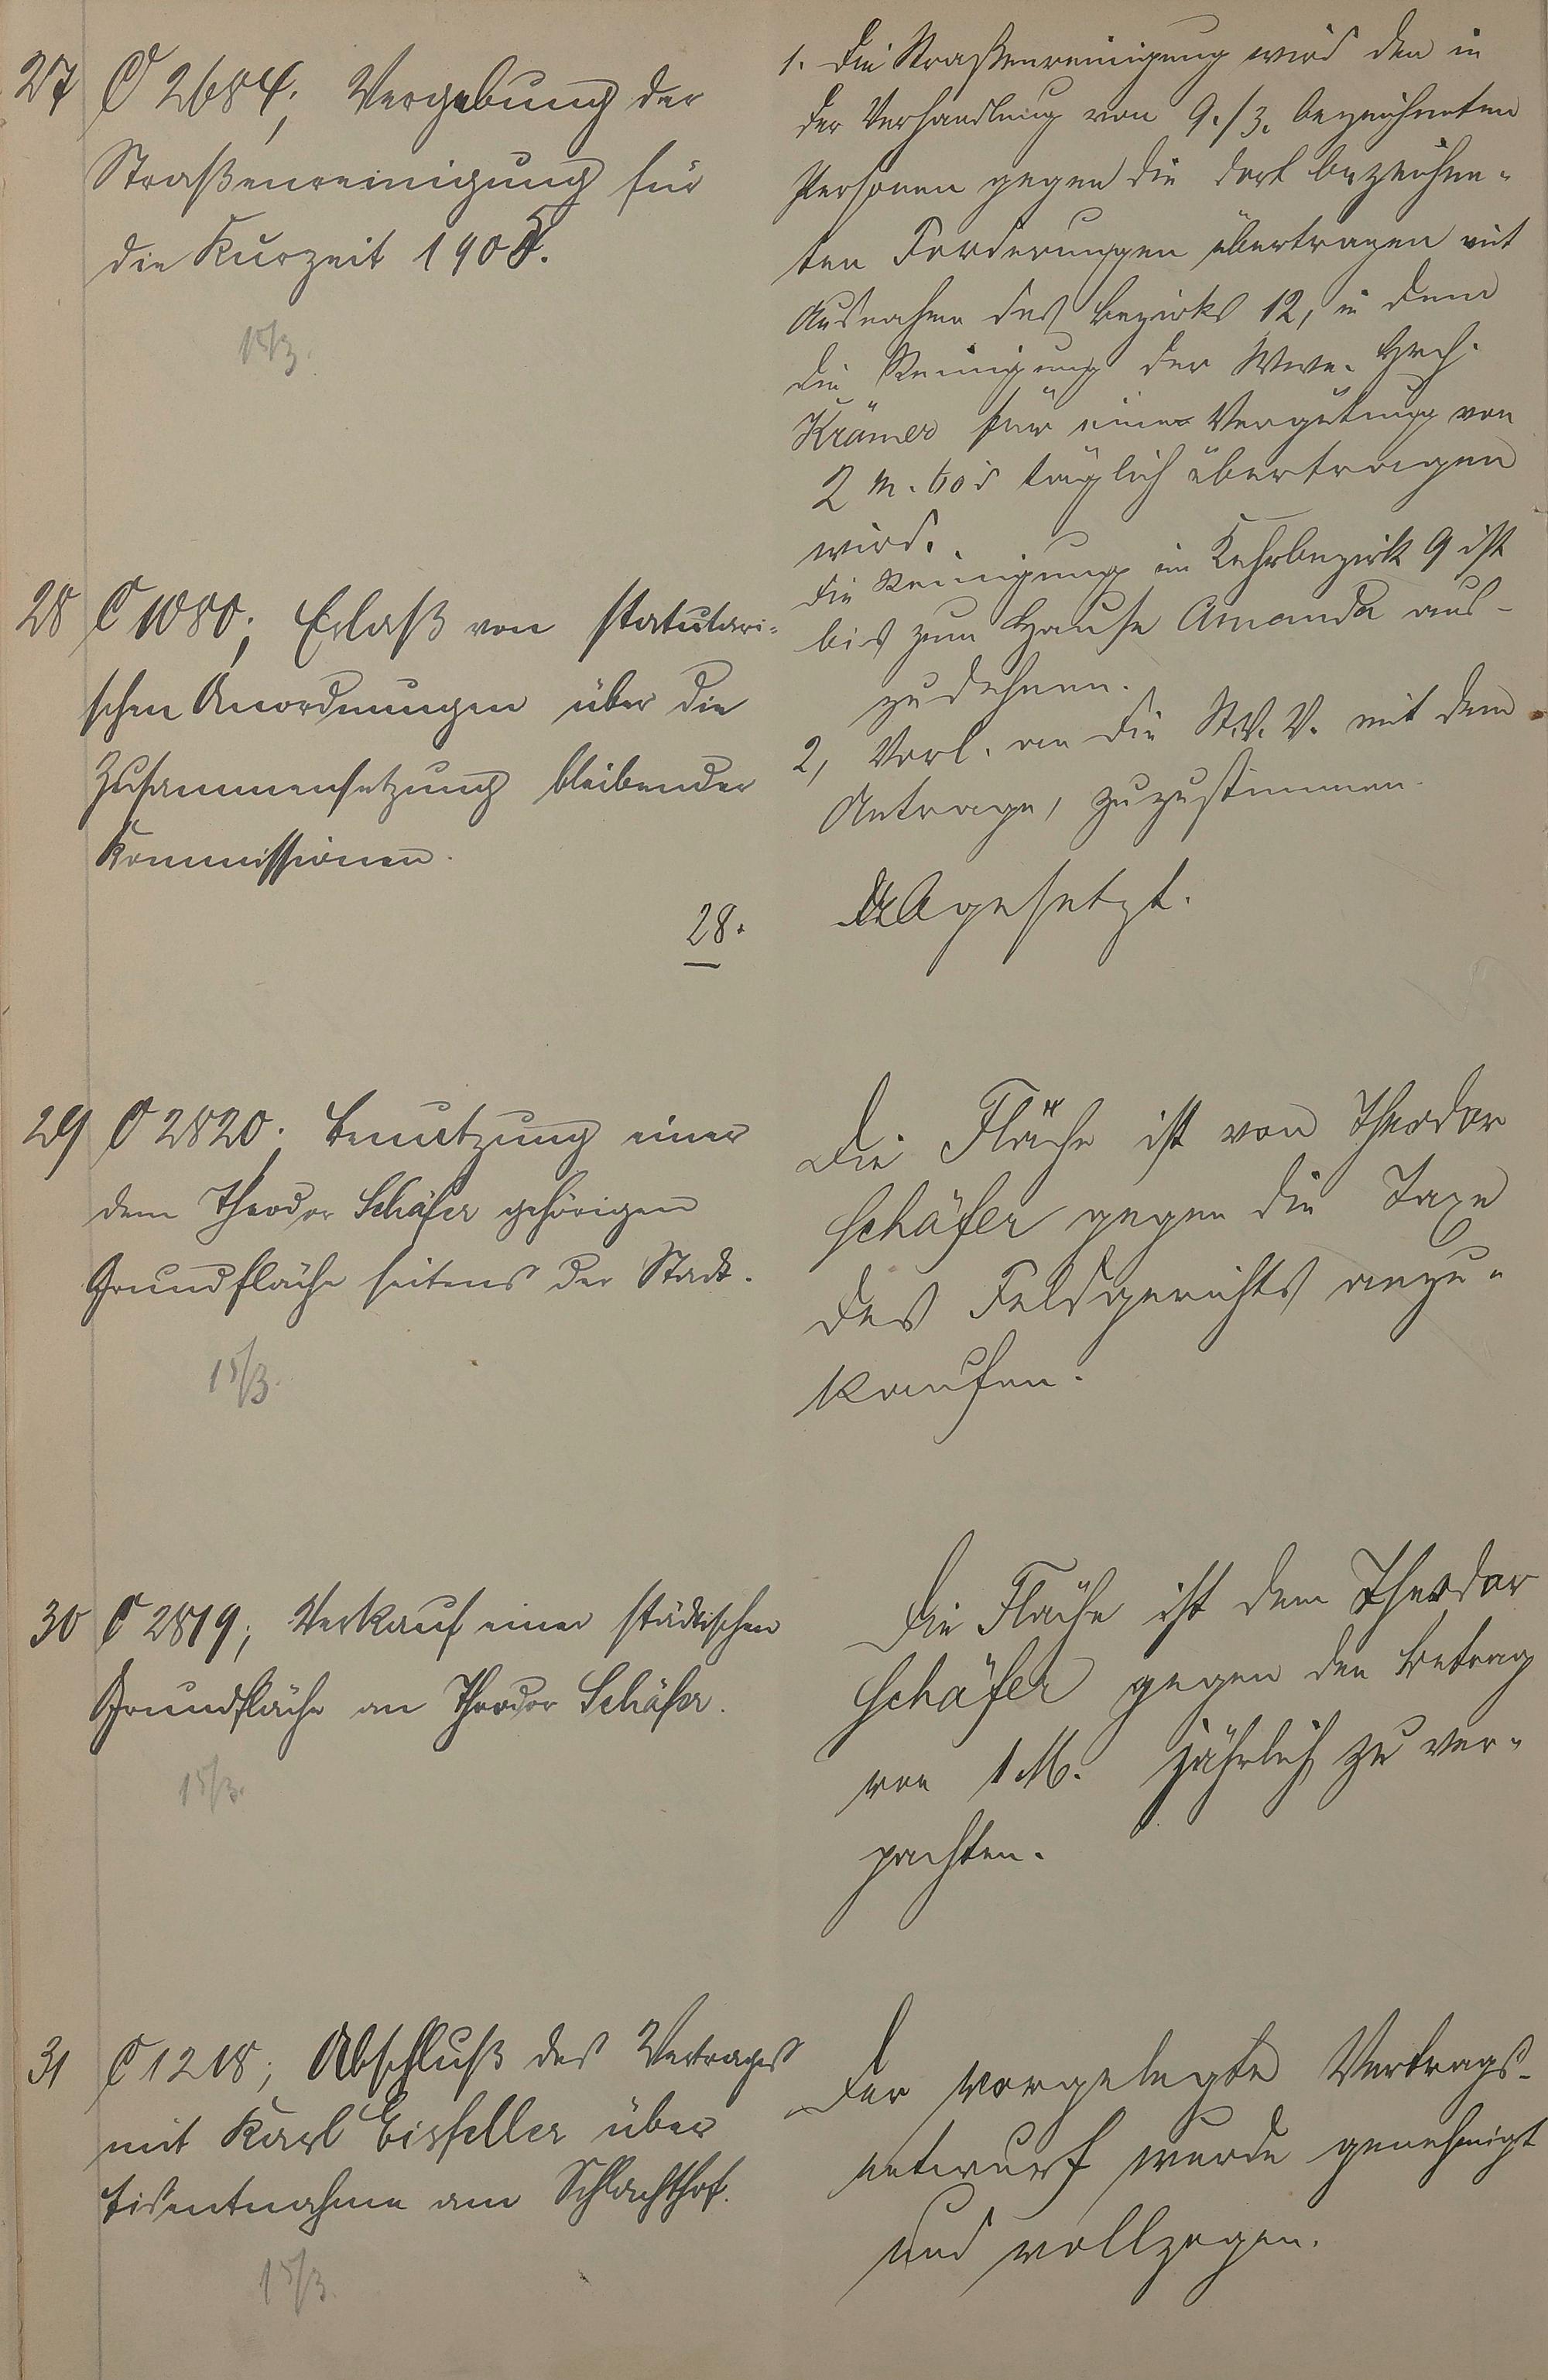 27
C 2684; Vergebung der
Straßenreinigung für
die Kurzeit 1905.
15/3.
1. Die Straßenreinigung wird den in
der Verhandlung von 9./3. bezeichneten
Personen gegen die dort bezeichne-
ten Forderungen übertragen mit
Ausnahme des Bezirks 12, in dem
die Reinigung der Wwe. Hrch.
Krämer für eine Vergütung von
2 M. 60 täglich übertragen
wird.
Die Reinigung im Kehrbezirk 9 ist
bis zum Hause Amanda aus-
zudehnen.
28
C 1080; Erlaß von statutari-
schen Anordnungen über die
Zusammensetzung bleibender
Kommissionen.
2, Vorl. an die St.V.V. mit dem
Antrage, zuzustimmen.
28.
Abgesetzt.
29
C 2820; Benutzung einer
dem Theodor Schäfer gehörigen
Grundfläche seitens der Stadt.
15/3.
Die Fläche ist von Theodor
Schäfer gegen die Taxe
des Feldgerichts anzu-
kaufen.
30
C 2819; Verkauf einer städtischen
Grundfläche an Theodor Schäfer.
15/3.
Die Fläche ist dem Theodor
Schäfer gegen den Betrag
von 1 M. jährlich zu ver-
pachten.
31
C 1218; Abschluß des Vertrages
mit Karl Eisfeller über
Eisentnahme am Schlachthof.
15/3.
Der vorgelegte Vertrags-
entwurf wurde genehmigt
und vollzogen.